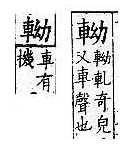 軪
軪軋奇皃
又車聲也
軪
車有
機